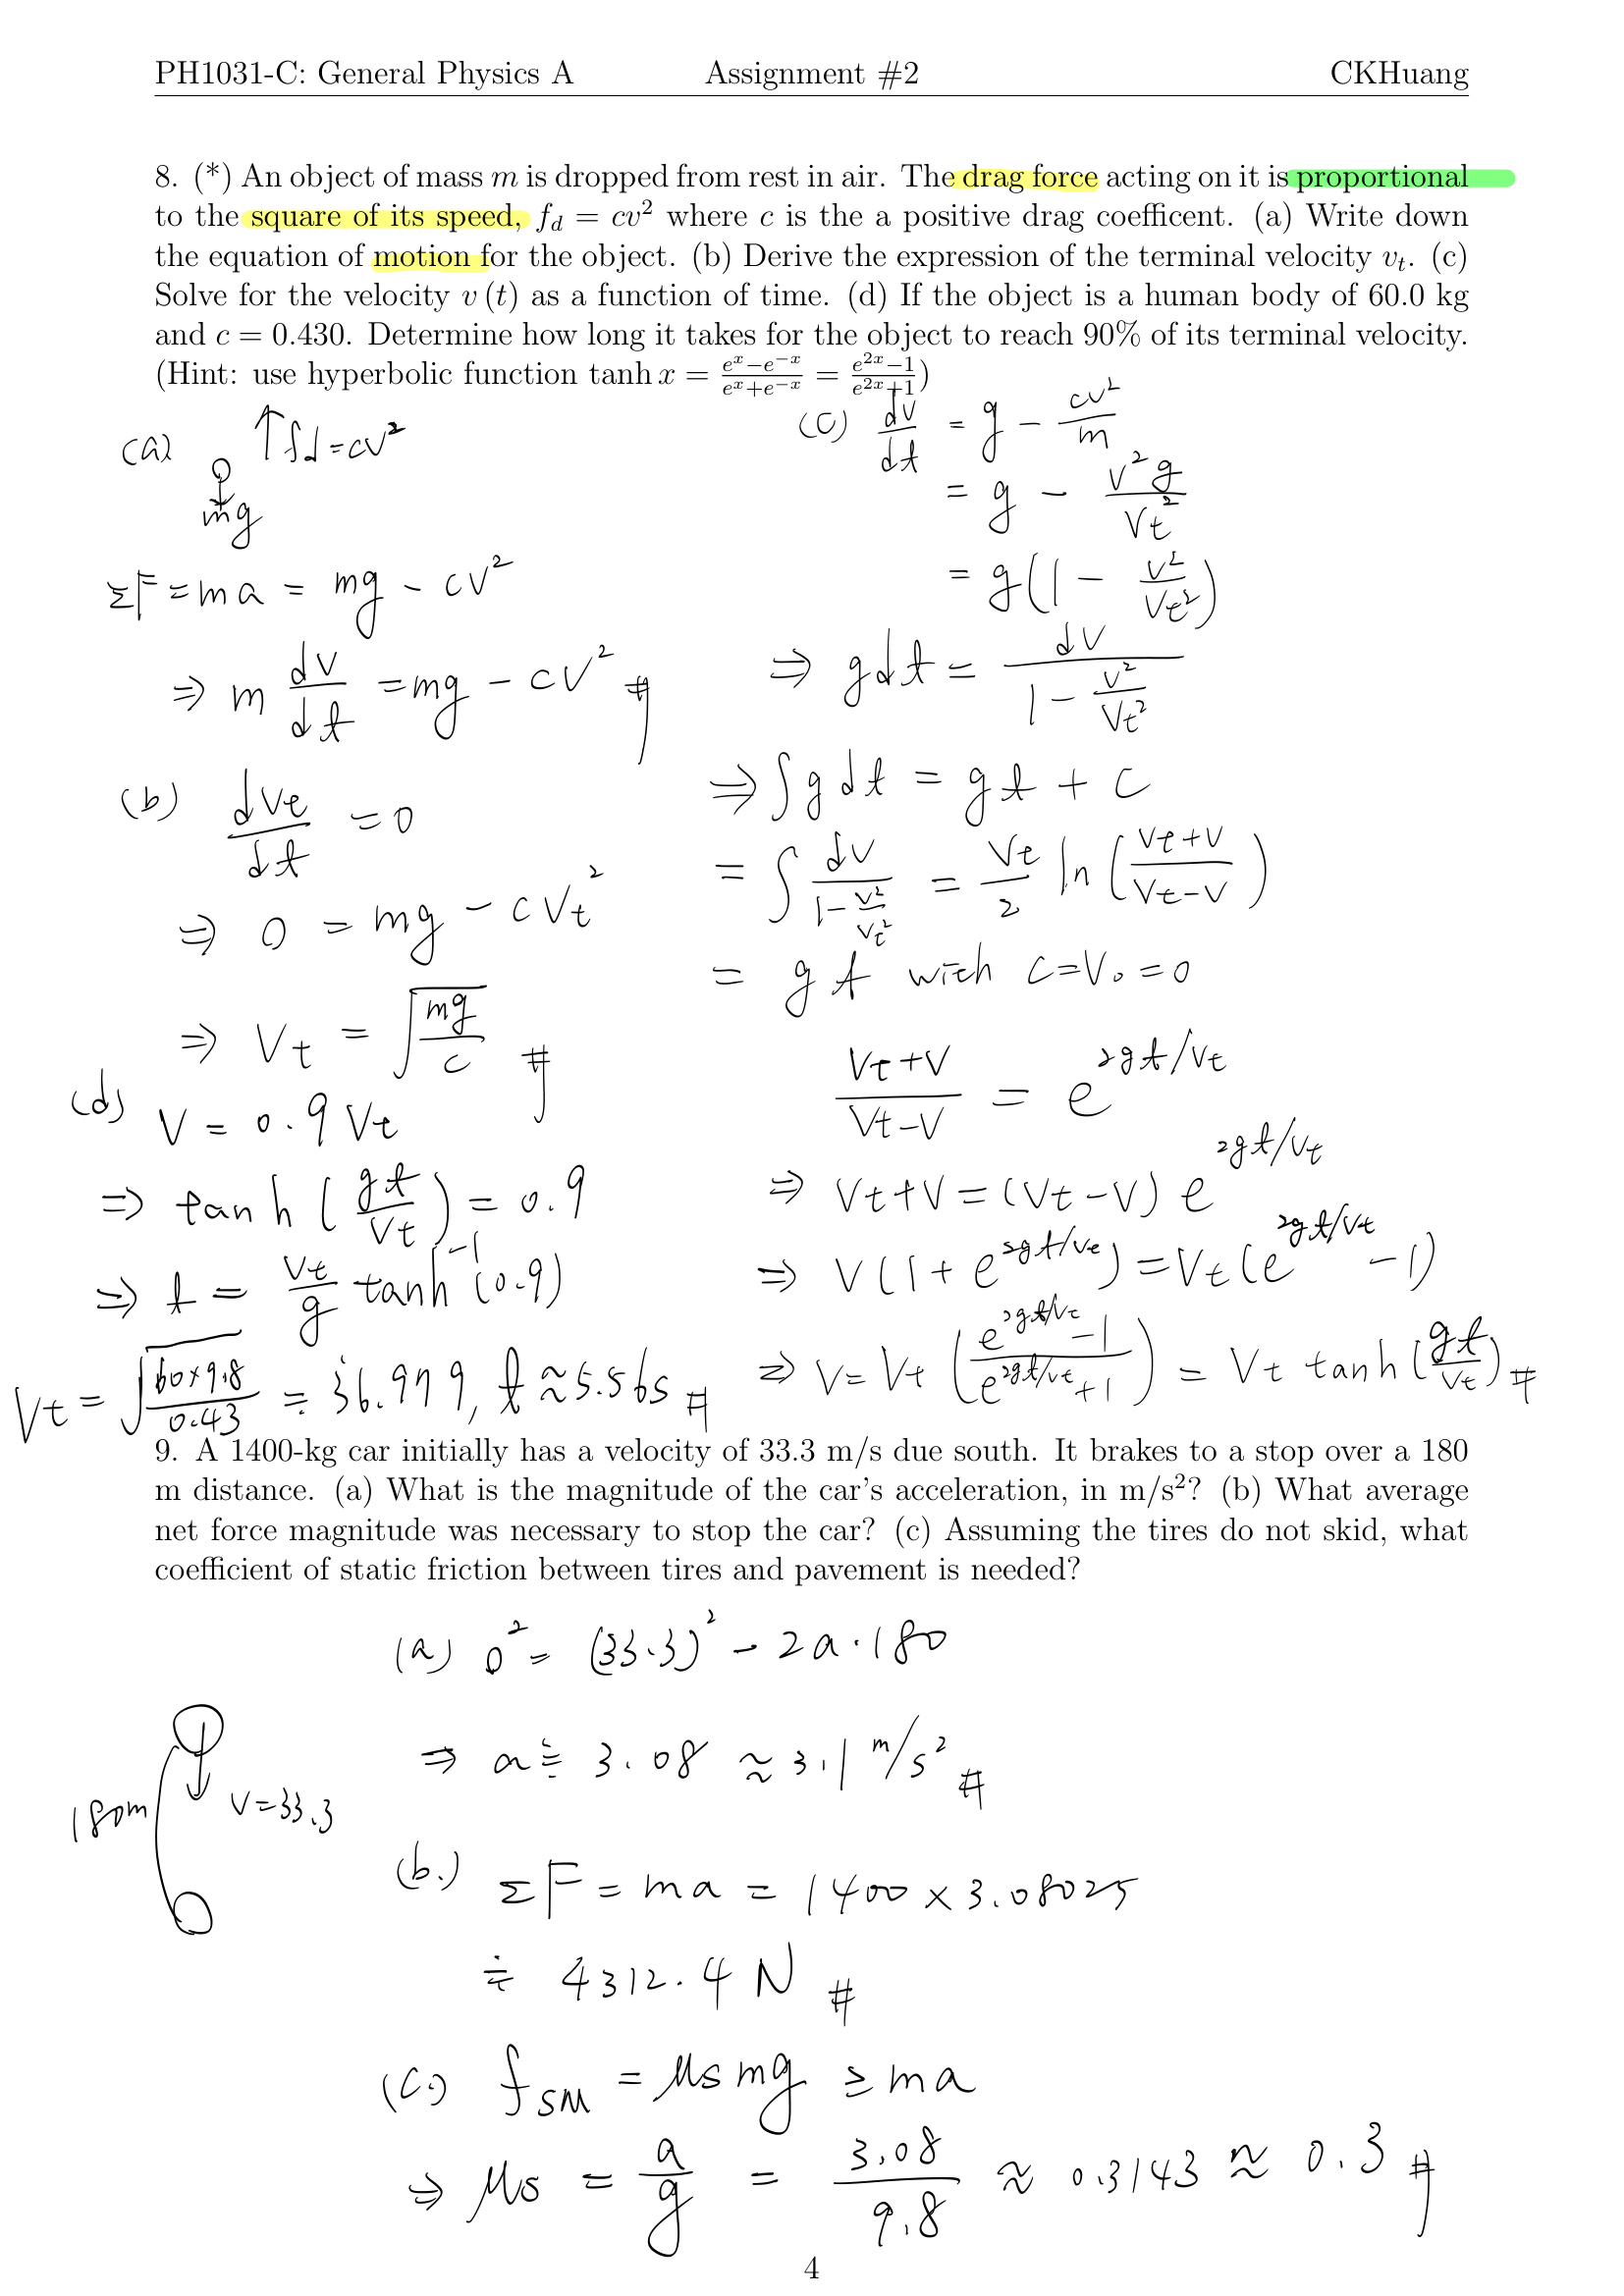 PH1031-C: General Physics A Assignment #2 CKHuang
8. (*) An object of mass m is dropped from rest in air. The drag force acting on it is proportional
to the square of its speed, f_d = cv² where c is the a positive drag coefficent. (a) Write down
the equation of motion for the object. (b) Derive the expression of the terminal velocity v_t. (c)
Solve for the velocity v (t) as a function of time. (d) If the object is a human body of 60.0 kg
and c = 0.430. Determine how long it takes for the object to reach 90% of its terminal velocity.
(Hint: use hyperbolic function tanh x = (e^x−e^−x)/(e^x+e^−x) = (e^2x−1)/(e^2x+1))
(a) ↑fd=cv²
mg
ΣF = ma = mg - cv²
⇒ m dv/dt = mg - cv² #
(b) dVt/dt = 0
⇒ 0 = mg - cVt²
⇒ Vt = √(mg/c) #
(c) dv/dt = g - cv²/m
= g - v²g/Vt²
= g(1 - v²/Vt²)
⇒ gdt = dv/(1 - v²/Vt²)
⇒ ∫gdt = gt + c
= ∫ dv/(1 - v²/Vt²) = Vt/2 ln((Vt+V)/(Vt-V))
= gt with c=V₀=0
(Vt+V)/(Vt-V) = e^(2gt/Vt)
⇒ Vt+V = (Vt-V) e^(2gt/Vt)
⇒ V(1+e^(2gt/Vt)) = Vt(e^(2gt/Vt) - 1)
⇒ V = Vt ((e^(2gt/Vt) - 1)/(e^(2gt/Vt) + 1)) = Vt tanh(gt/Vt) #
(d) V = 0.9 Vt
⇒ tanh(gt/Vt) = 0.9
⇒ t = Vt/g tanh⁻¹(0.9)
Vt = √(60×9.8/0.43) ≒ 36.979, t ≈ 5.56s #
9. A 1400-kg car initially has a velocity of 33.3 m/s due south. It brakes to a stop over a 180
m distance. (a) What is the magnitude of the car's acceleration, in m/s²? (b) What average
net force magnitude was necessary to stop the car? (c) Assuming the tires do not skid, what
coefficient of static friction between tires and pavement is needed?
(a) 0² = (33.3)² - 2a·180
⇒ a ≒ 3.08 ≈ 3.1 m/s² #
180m
V=33.3
(b.) ΣF = ma = 1400 × 3.08025
≒ 4312.4 N #
(c.) fSM = μs mg ≥ ma
⇒ μs = a/g = 3.08/9.8 ≈ 0.3143 ≈ 0.3 #
4